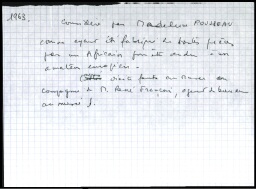 1963.
Considéré par Madeleine ROUSSEAU
comme ayant été fabriqué de toutes pièces
par un Africain pour être vendu à un
amateur européen.
visite faite au Musée en
compagnie de M. René François, agent de bureau
au musée